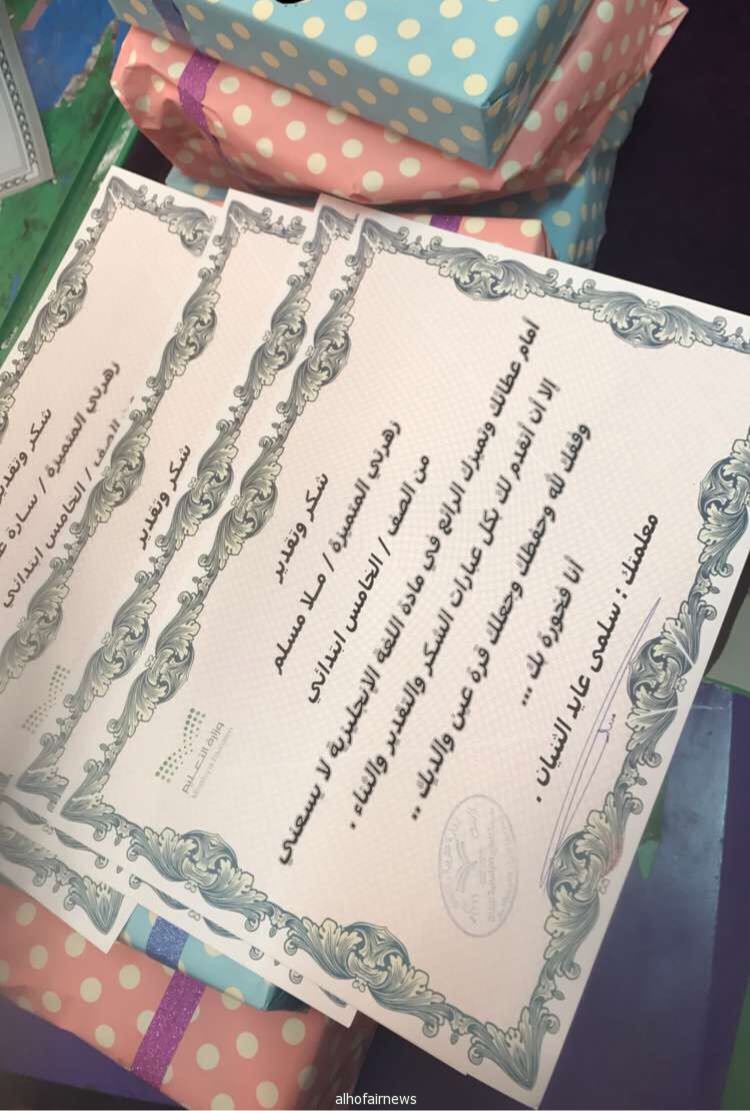 شكر وتقدير
زهرتي المتميزة / مـلا مسلم
من الصف / الخامس ابتدائي
أمام عطائك وتميزك الرائع في مادة اللغة الإنجليزية لا يسعني
إلا أن أتقدم لك بكل عبارات الشكر والتقدير والثناء .
وفقك لله وحفظك وجعلك قرة عين والديك ..
أنا فخورة بك ...
معلمتك : سلمى عايد الثنيان .
وزارة التعليم
Ministry of Education
شكر وتقدير
شكر وتقدير
زهرتي المتميزة / سـارة
الصف / الخامس ابتدائي
alhofairnews